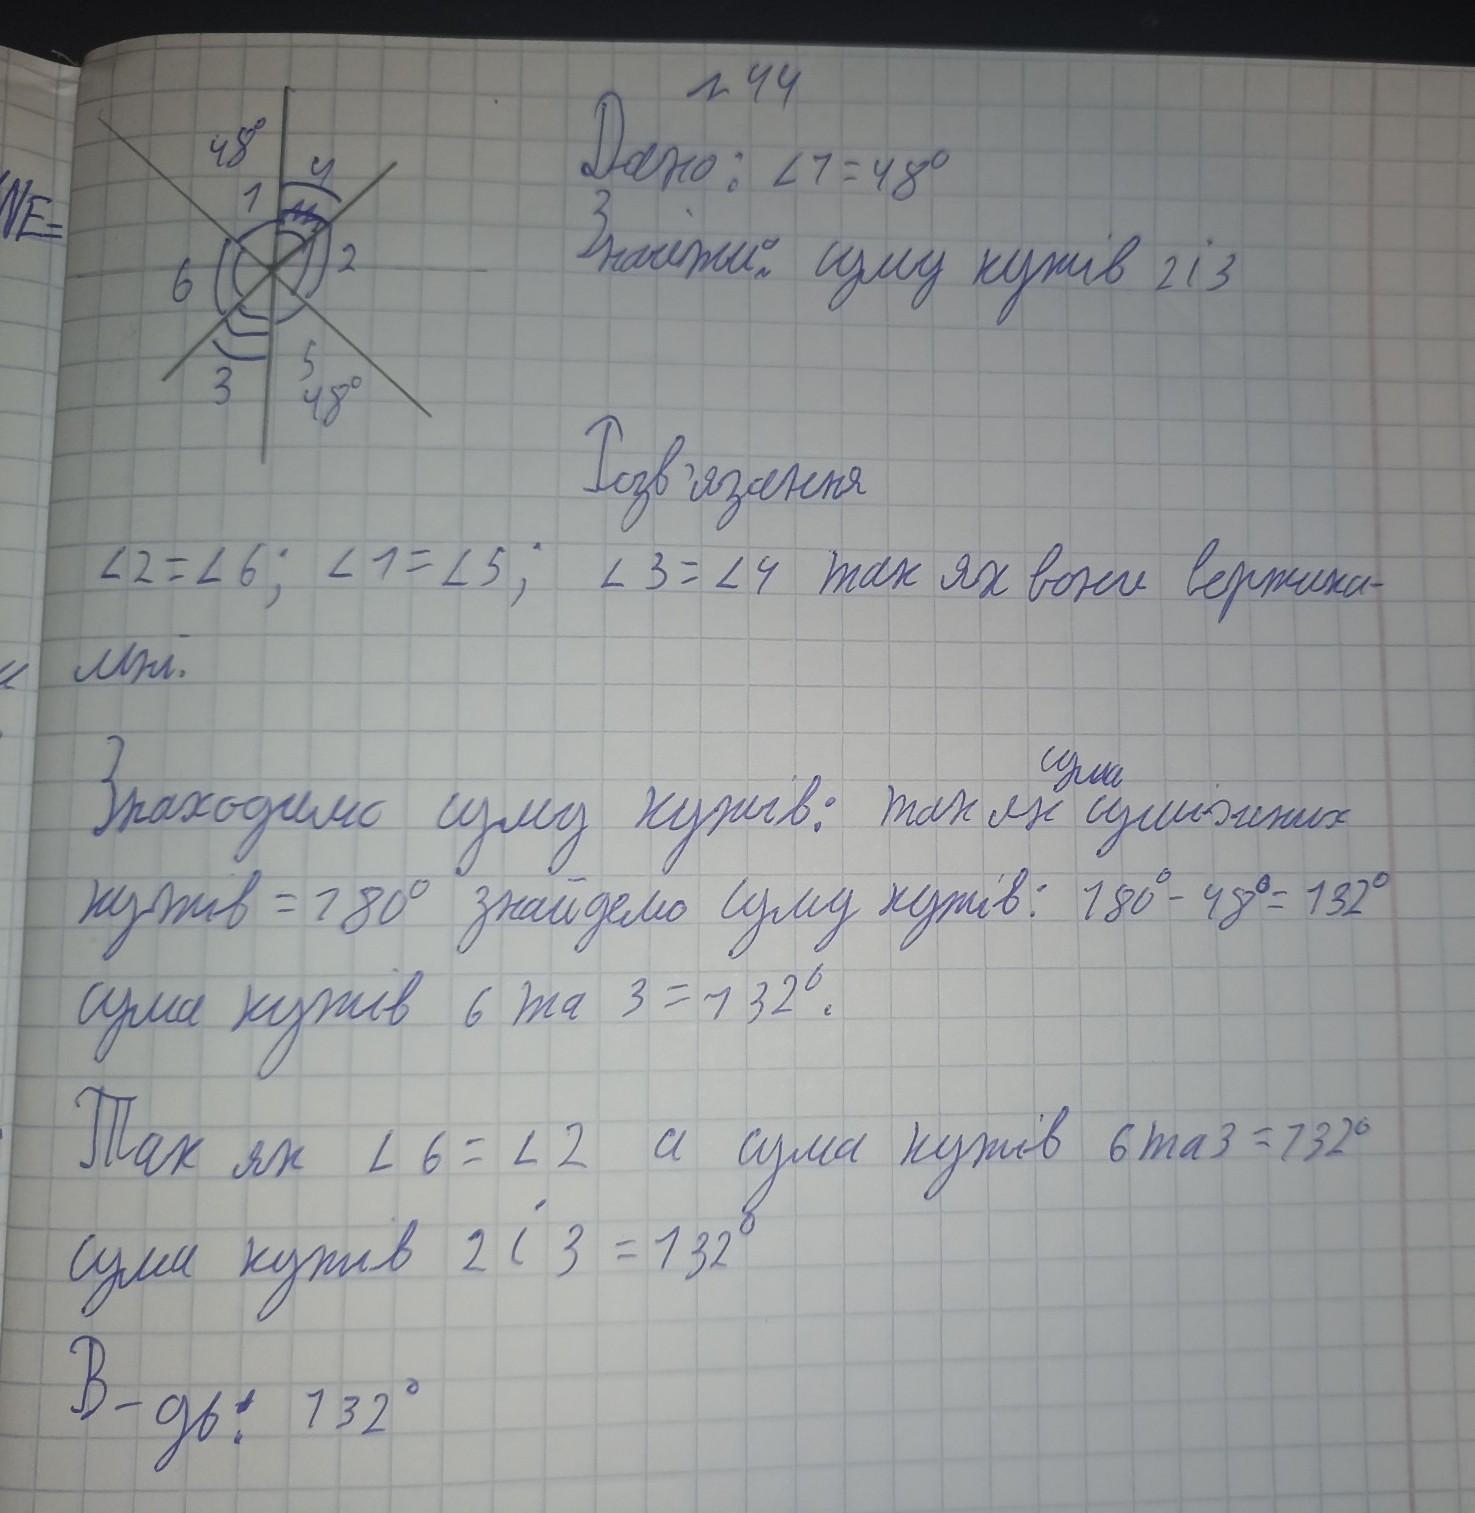 №44
48°
4
1
2
6
3
5
48°
NE=
Дано: ∠1=48°
Знайти: суму кутів 2 і 3
Розв'язання
∠2=∠6; ∠1=∠5; ∠3=∠4 так як вони вертика-
льні.
сума
Знаходимо суму кутів: так як суміжних
кутів =180° знайдемо суму кутів: 180°-48°=132°
сума кутів 6 та 3 =132°.
Так як ∠6=∠2 а сума кутів 6 та 3 =132°
сума кутів 2 і 3 =132°
В-дь: 132°